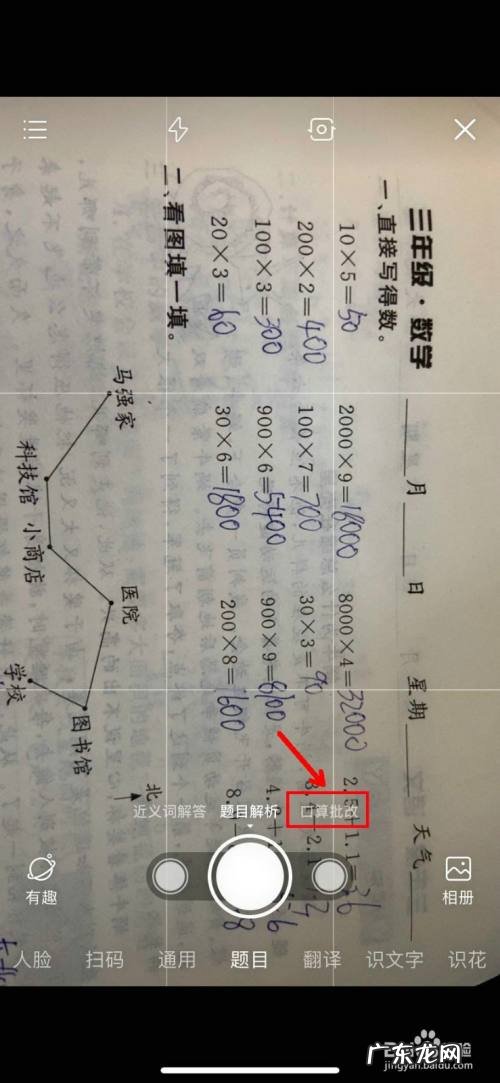 三年级·数学
月 日 星期 天气
一、直接写得数。
10×5=50 2000×9=18000 8000×4=32000 2.5+1.1=3.6
200×2=400 100×7=700 30×3=90
100×3=300 900×6=5400 900×9=8100
20×3=60 30×6=1800 200×8=1600
二、看图填一填。
马强家
科技馆
小商店
医院
图书馆
学校
北
近义词解答 题目解析 口算批改
有趣 相册
人脸 扫码 通用 题目 翻译 识文字 识花
广东龙网
jingyan.baidu.com